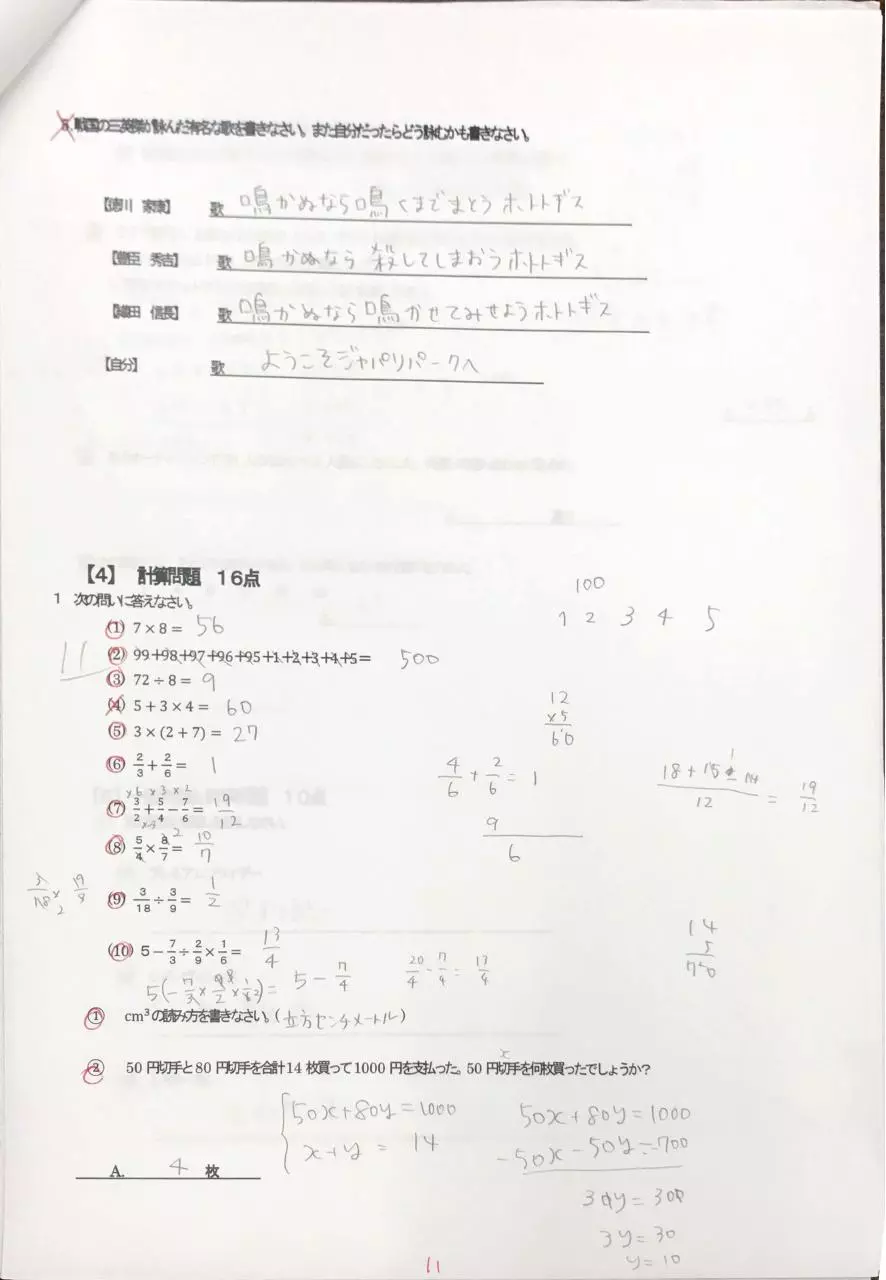 5.戦国の三英傑が詠んだ有名な歌を書きなさい。また自分だったらどう詠むかも書きなさい。
【徳川 家康】 歌 鳴かぬなら鳴くまでまとうホトトギス
【豊臣 秀吉】 歌 鳴かぬなら殺してしまおうホトトギス
【織田 信長】 歌 鳴かぬなら鳴かせてみせようホトトギス
【自分】 歌 ようこそジャパリパークへ
【4】 計算問題 16点
1 次の問いに答えなさい。
100
1 2 3 4 5
(1) 7×8= 56
11
(2) 99+98+97+96+95+1+2+3+4+5= 500
(3) 72÷8= 9
(4) 5+3×4= 60
12
×5
60
(5) 3×(2+7)= 27
(6) 2/3+2/6= 1
4/6+2/6=1
9/6
(7) 3/2+5/4−7/6= 19/12
×6 ×3 ×2
= 19/12
(8) 5/4×8/7= 10/7
2
(9) 3/18÷3/9= 1/2
(10) 5−7/3÷2/9×1/6= 13/4
5−7/4
20/4−7/4=13/4
14
5
720
① cm³の読み方を書きなさい。(立方センチメートル)
② 50円切手と80円切手を合計14枚買って1000円を支払った。50円切手を何枚買ったでしょうか?
x
50x+80y=1000
x+y=14
50x+80y=1000
-50x-50y=-700
30y=300
3y=30
y=10
A. 4 枚
11